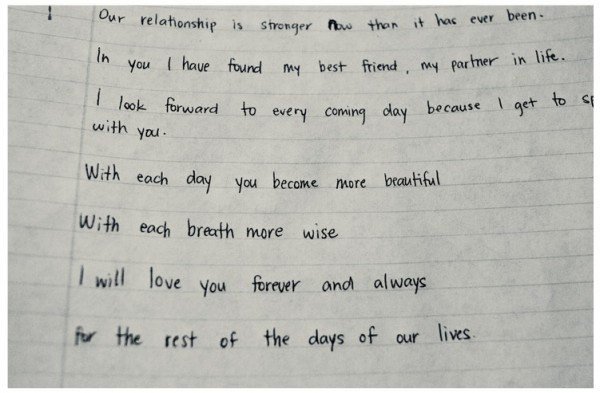 Our relationship is stronger now than it has ever been.
In you I have found my best friend, my partner in life.
I look forward to every coming day because I get to sp
with you.
With each day you become more beautiful
With each breath more wise
I will love you forever and always
for the rest of the days of our lives.